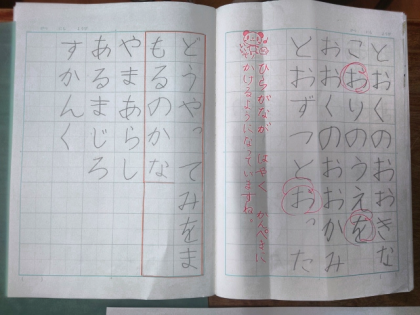 とおくのおおきな
こおりのうえを
おおくのおおかみ
とおずつとおった
ひらがなが はやく かんぺきに
かけるようになっていますね。
どうやってみをま
もるのかな
やまあらし
あるまじろ
すかんく